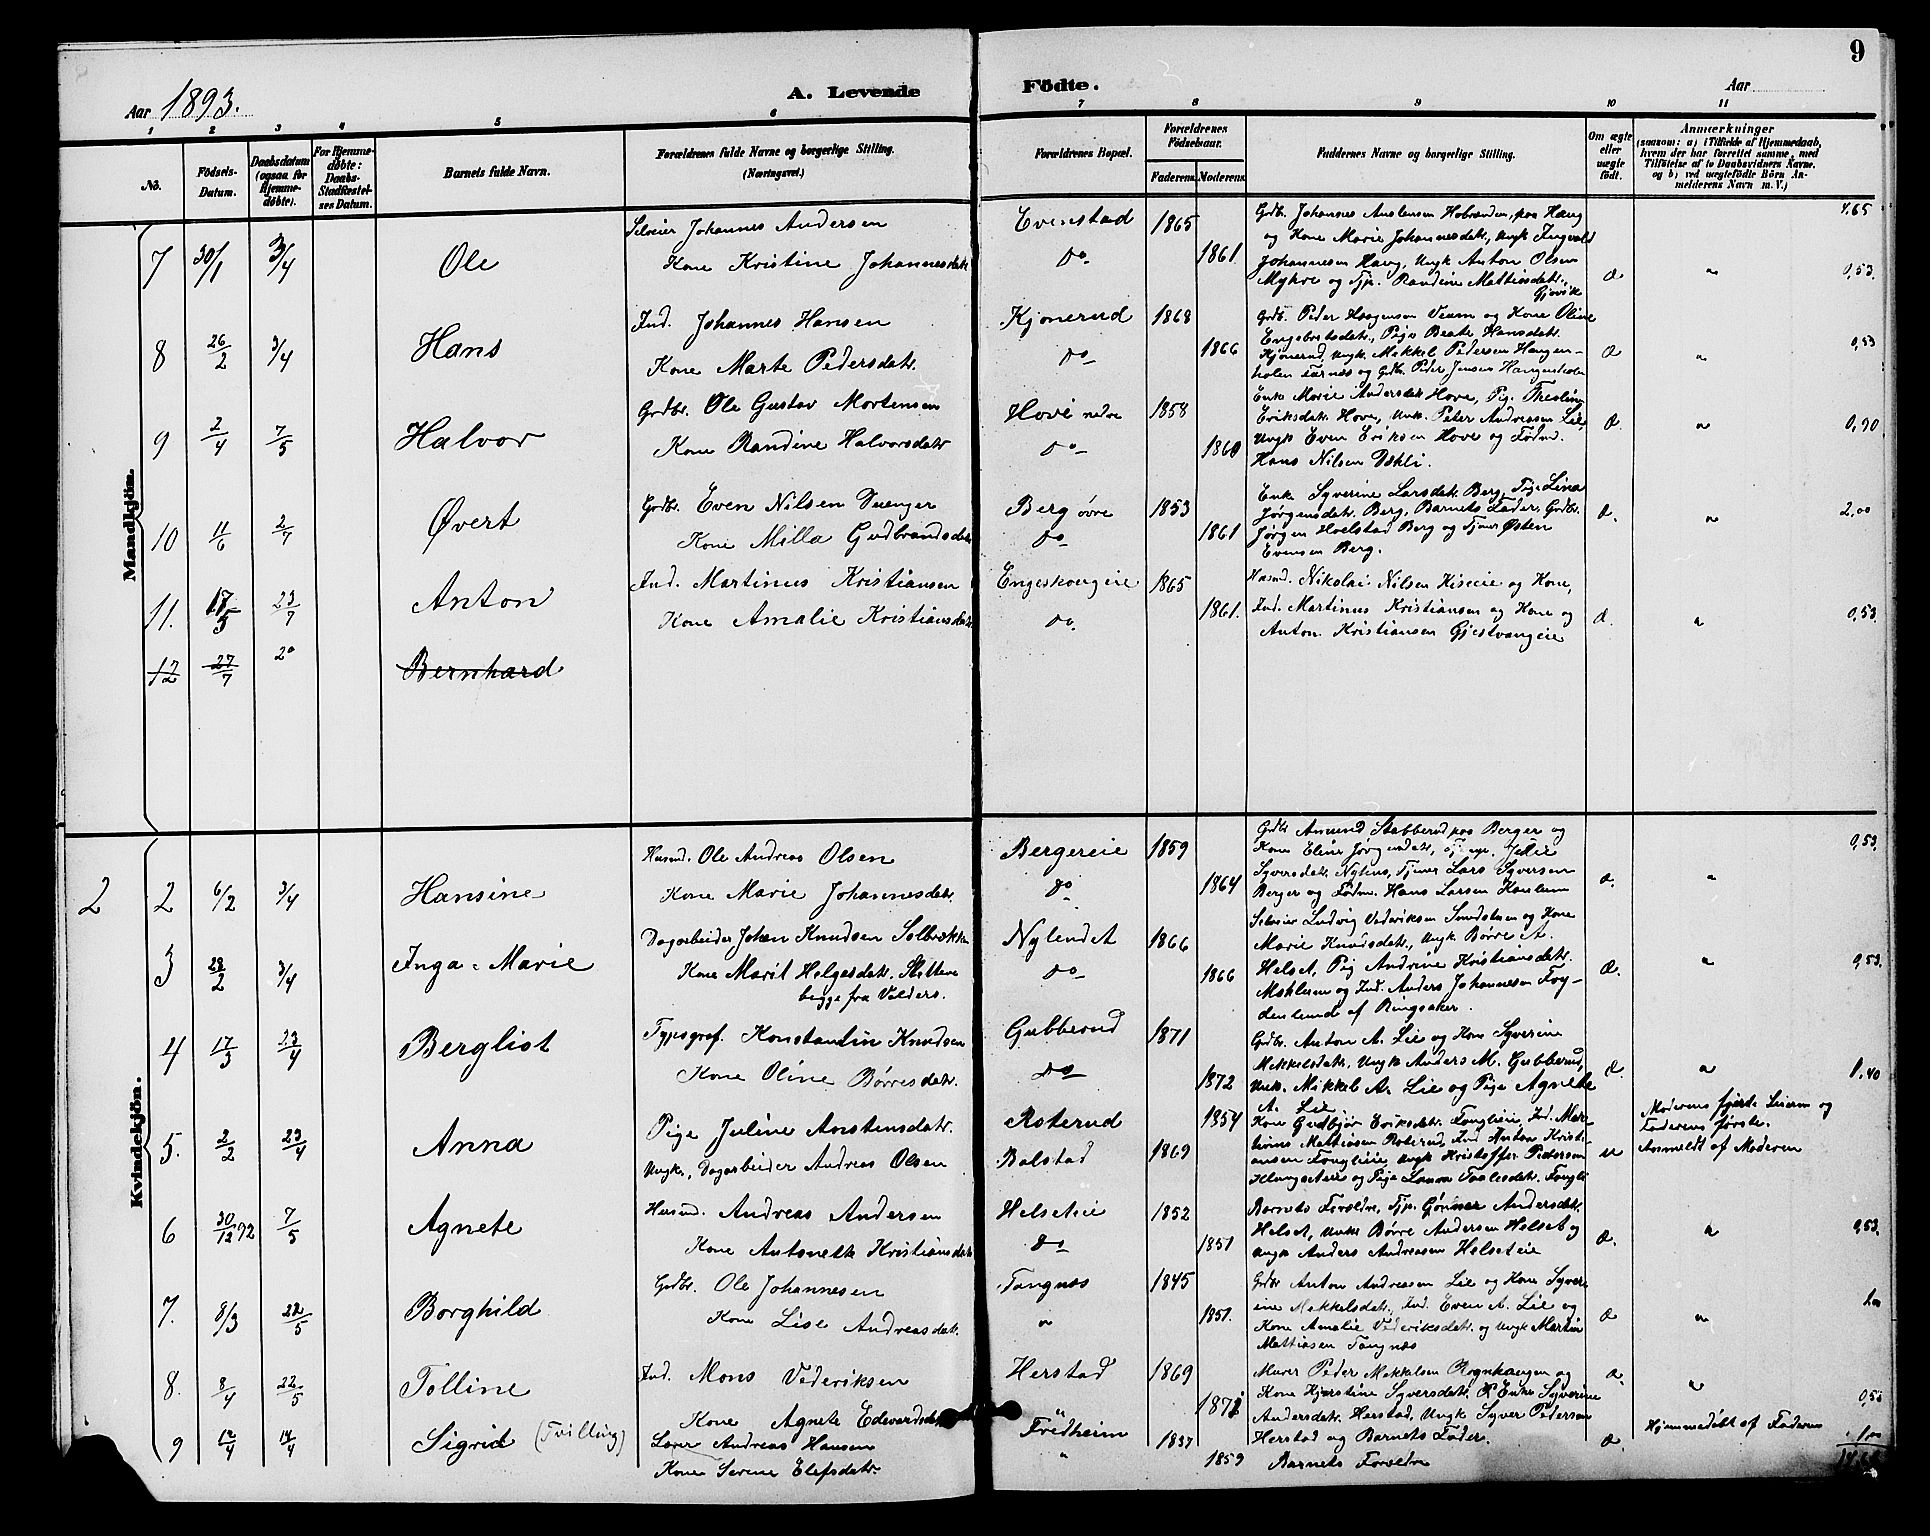 9
Aar 1893.
A. Levende Födte.
Aar
1 2 3 4 5 6 7 8 9 10 11
No.
Födsels-
Datum.
Daabsdatum
(ogsaa for
Hjemme-
døbte).
For Hjemme-
døbte:
Daabs-
Stadfæstel-
ses Datum.
Barnets fulde Navn.
Forældrenes fulde Navne og borgerlige Stilling.
(Næringsvei.)
Forældrenes Bopæl.
Forældrenes
Födselsaar.
Faderens. Moderens.
Faddernes Navne og borgerlige Stilling.
Om ægte
eller
uægte
födt.
Anmærkninger
(saasom: a) i Tilfælde af Hjemmedaab,
hvem der har forrettet samme, med
Tilföielse af to Daabsvidners Navne,
og b) ved uægtefödte Börn An-
melderens Navn m. V.)
Mandkjön.
4,65
7 30/1 3/4 Ole
Selveier Johannes Andersen
Kone Kristine Johannesdatr
Evenstad 1865
do 1861.
Grdbr. Johannes Anstensen Hobranden, paa Haug
og Kone Marie Johannesdatr., Ungk Ingvald
Johannesen Haug, Ungk Anton Olsen
Myhre og Tjp. Randine Mattiasdatr.,
Gjøvik
æ " 0,53.
8 26/2 3/4 Hans
Ind. Johannes Hansen
Kone Marte Pedersdatr.
Kjonerud 1868
do 1866
Grdb. Peder Haagensen Veum og Kone Oline
Engebretsdatr., Pige Beate Hansdatr.
Kjonerud, Ungk. Mikkel Pedersen Haugen-
holen Farnæs og Grdbr. Peder Jensen Haugenholen
æ " 0,53
9 2/4 7/5 Halvor
Grdbr. Ole Gustav Mortensen
Kone Randine Halvorsdatr
Hove nedre 1858
do 1860
Enke Marie Andersdatr Hove, Pig.
Eriksdatr. Hove, Ungk. Peter Andreassen Lie,
Ungk Even Eriksen Hove og Fødrd.
Hans Nilsen Dæhli.
æ. " 0,90
10 11/6 2/7 Øvert
Grdbr. Even Nilsen
Kone Milla Gudbrandsdatr
Berg øvre 1853
do 1861
Enke Syverine Larsdatr. Berg, Pige Lina
Jørgensdatr. Berg, Barnets Fader, Grdbr.
Jørgen Hoelstad Berg og Tjener Østen
Evensen Berg.
æ. " 2,00
11. 17/5 23/7 Anton
Ind. Martinus Kristiansen
Kone Amalie Kristiansdatr
Engeskougeie 1865
do. 1861.
Husmd. Nikolai Nilsen Kiseeie og Kone,
Ind. Martinus Kristiansen og Kone og
Anton Kristiansen Gjestvangeie
æ. " 0,53.
12 27/7 20 Bernhard
Kvindekjön.
2
2 6/2 3/4 Hansine
Husmd. Ole Andreas Olsen
Kone Marie Johannesdatr.
Bergereie 1859
do 1864
Grdbr Amund Stabberud paa Berger og
Kone Eline Jørgensdatr.,
Syversdatr. Nyhus, Tjener Lars Syversen
Berger og Fødrm. Hans Larsen
æ. " 0,53.
3 28/2 3/4 Inga - Marie
Dagarbeider Johan Knudsen Solbrække
Kone Marit Helgesdatr.
begge fra Valders.
Nylendet 1866
do 1866
Selveier Ludvig Vederiksen Smedstuen og Kone
Marie Knudsdatr., Ungk Børre A.
Helset, Pig Andrine Kristiansdatr.
Moklum og Ind. Anders Johannesen Foy-
denlund af Ringsaker.
æ. " 0,53.
4 17/3 23/4 Bergliot
Typograf. Konstantin Knudsen
Kone Oline Børresdatr.
Gubberud 1871
do 1872
Grdbr. Anton A. Lie og Kone Syverine
Mikkelsdatr, Ungk Anders M. Gubberud,
Ungk. Mikkel A. Lie og Pige Agnete
A. Lie
æ. " 1,40
5. 2/2 23/4 Anna
Pige Juline Anstensdatr.
Ungk., Dagarbeider Andreas Olsen
Roterud 1854
Balstad 1869
Kone Gudbjør Eriksdatr. Fonglieie, Ind. Mar-
tinus Mattiasen Roterud, Ind Anton Kristi-
ansen Fonglieie, Ungk Kristoffer Pedersen
Klungsnæs og Pige Laura Paalesdatr. Fongli
u
Moderens fjerde Leierm og
Faderens første.
Anmeldt af Moderen
6 30/12 92 7/5 Agnete
Husmd. Andreas Andersen
Kone Antonette Kristiansdatr
Helseteie 1852
do 1851
Barnets Forældre, Tjp. Gønner Andersdatr.
Helset, Ungk. Børre Andersen Helset og
Ungk Anders Andreasen Helseteie
æ. " 0,53.
7. 8/3 22/5 Borghild
Grdbr. Ole Johannesen
Kone Lise Andreasdatr.
Tangnæs 1845
" 1851.
Grdbr Anton Andreasen Lie og Kone Syver
ine Mikkelsdatr., Ind. Even A. Lie og
Kone Amalie Vederiksdatr. og Ungk Martin
Mattiasen Tangnæs
æ "
8. 8/4 22/5 Tolline
Ind. Mons Vederiksen
Kone Agnete Edvardsdatr
Herstad 1869
1871
Murer Peder Mikkelsen Rognhaugen og
Kone Kjerstine Syversdatr. Enke Syverine
Andersdatr. Herstad, Ungk Syver Pedersen
Herstad og Barnets Fader.
æ. " 0,53
9 12/4 14/4 Sigrid (Tvilling)
Lærer Andreas Hansen
Kone Serene Elefsdatr.
Frødheim 1857
" 1859
Barnets Forældre
æ.
Hjemmedøbt af Faderen
1,00